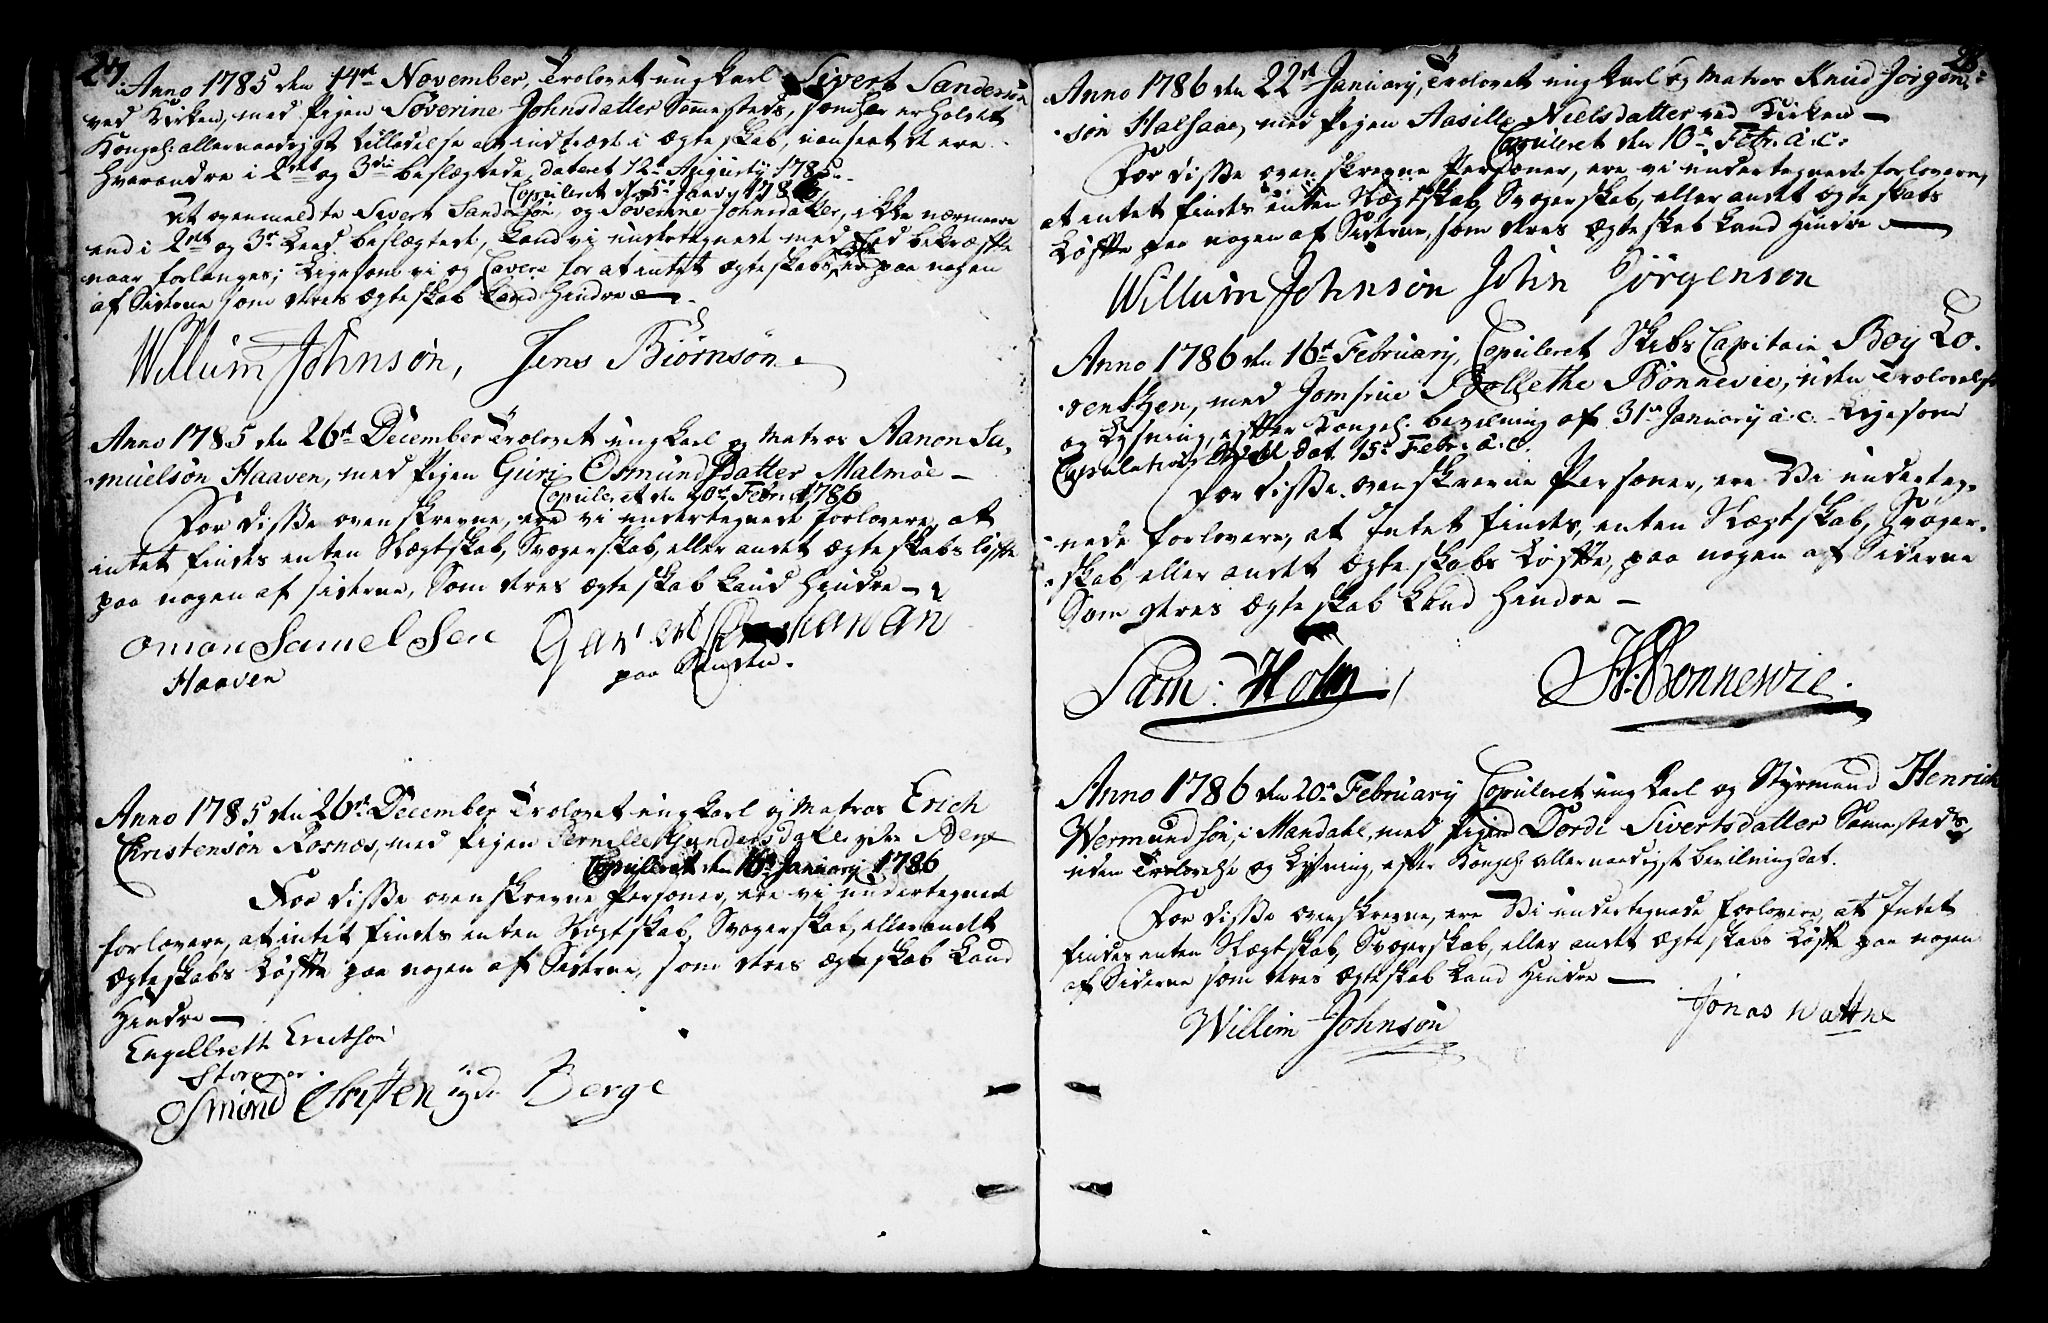 27.
Anno 1785 den 14de November, Trolovet ungkarl Sivert Sandersøn
ved Kirken, med Pigen Søverine Johnsdatter Sammesteds, som har erholdet
Kongel: allernaadigst tilladelse at indtræde i ægteskab, uanseet de ere
hverandre i 2det og 3die beslægtede, dateret 12te Augusty 1785.
Copuleret d. 5te January 1786
At ovenmeldte Sivert Sandersøn, og Søverine Johnsdatter, ikke nærmere
end i 2det og 3die Leed beslægtede, kand vi undertegnede med Eed bekræfte
naar forlanges; Ligesom vi og Cavere for at intet ægteskabs er paa nogen
af Siderne som deres ægteskab kand hindre
Willum Johnsøn, Jens Biørnsøn.
Anno 1785 den 26de December Trolovet ungkarl og Matros Aanon Sa-
muelsøn Haaven, med Pigen Guri Osmundsdatter Malmøe
Copuleret den 20de Febr. 1786
For disse ovenskrevne, ere vi undertegnede forlovere, at
intet findes enten Slegtskab, Svogerskab, eller andet ægteskabs løfte
paa nogen af siderne, som deres ægteskab kand hindre
Omon Samelsen
Haaven
paa
Anno 1785 den 26de December Trolovet ungkarl og Matros Erich
Christensøn Rosnæs, med Pigen Pernille Gundersdatter ydre Berge
Copuleret den 16de January 1786
For disse ovenskrevne Personer, ere vi undertegnede
forlovere, at intet findes enten Slegtskab, Svogerskab, eller andet
ægteskabs Løfte paa nogen af Siderne, som deres ægteskab kand
hindre
Engelbrett Knutsøn
Osmond Christen ydre Berge
28.
Anno 1786 den 22de January, Trolovet ungkarl og Matros Knud Jørgen-
søn Halsaae, med Pigen Aasille Nielsdatter ved Kirken
Copuleret den 10de Febr. a.c.
For disse ovenskrevne Personer, ere vi undertegnede forlovere,
at intet findes enten Slegtskab, Svogerskab, eller andet ægteskabs
Løfte paa nogen af Siderne, som deres ægteskab kand hindre
Willum Johnsøn John Jørgensøn
Anno 1786 den 16de February, Copuleret Skibs Capitain Boy Lo-
rentzen, med Jomfrue Bollethe Bonnevie, uden Trolovelse
og Lysning, efter Kongel: bevilning af 31te January a.c. Ligesom
Copulations dat. 15de Febr. a.c.
For disse ovenskrevne Personer, ere Vi underteg-
nede forlovere, at Intet findes, enten Slegtskab, Svoger-
skab, eller andet ægteskabs Løfte, paa nogen af Siderne
Som deres ægteskab kand hindre
Sam: Holm H: Bonnewie.
Anno 1786 den 20de February Copuleret ungkarl og Styrmand Henrich
Wermundsøn, i Mandahl, med Pigen Dordi Sivertsdatter Sammesteds,
uden Trolovelse og Lysning, efter Kongel: allernaadigst bevilning dat.
For disse ovenskrevne, ere Vi undertegnede forlovere, at Intet
findes enten Slegtskab, Svogerskab, eller andet ægteskabs Løfte paa nogen
af Siderne som deres ægteskab kand hindre
Willum Johnsøn Jonas Wattne